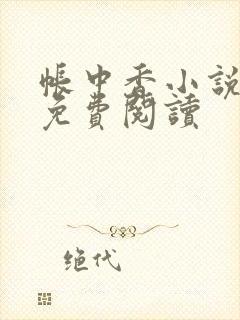 帳中香小說
免費閱讀
绝代